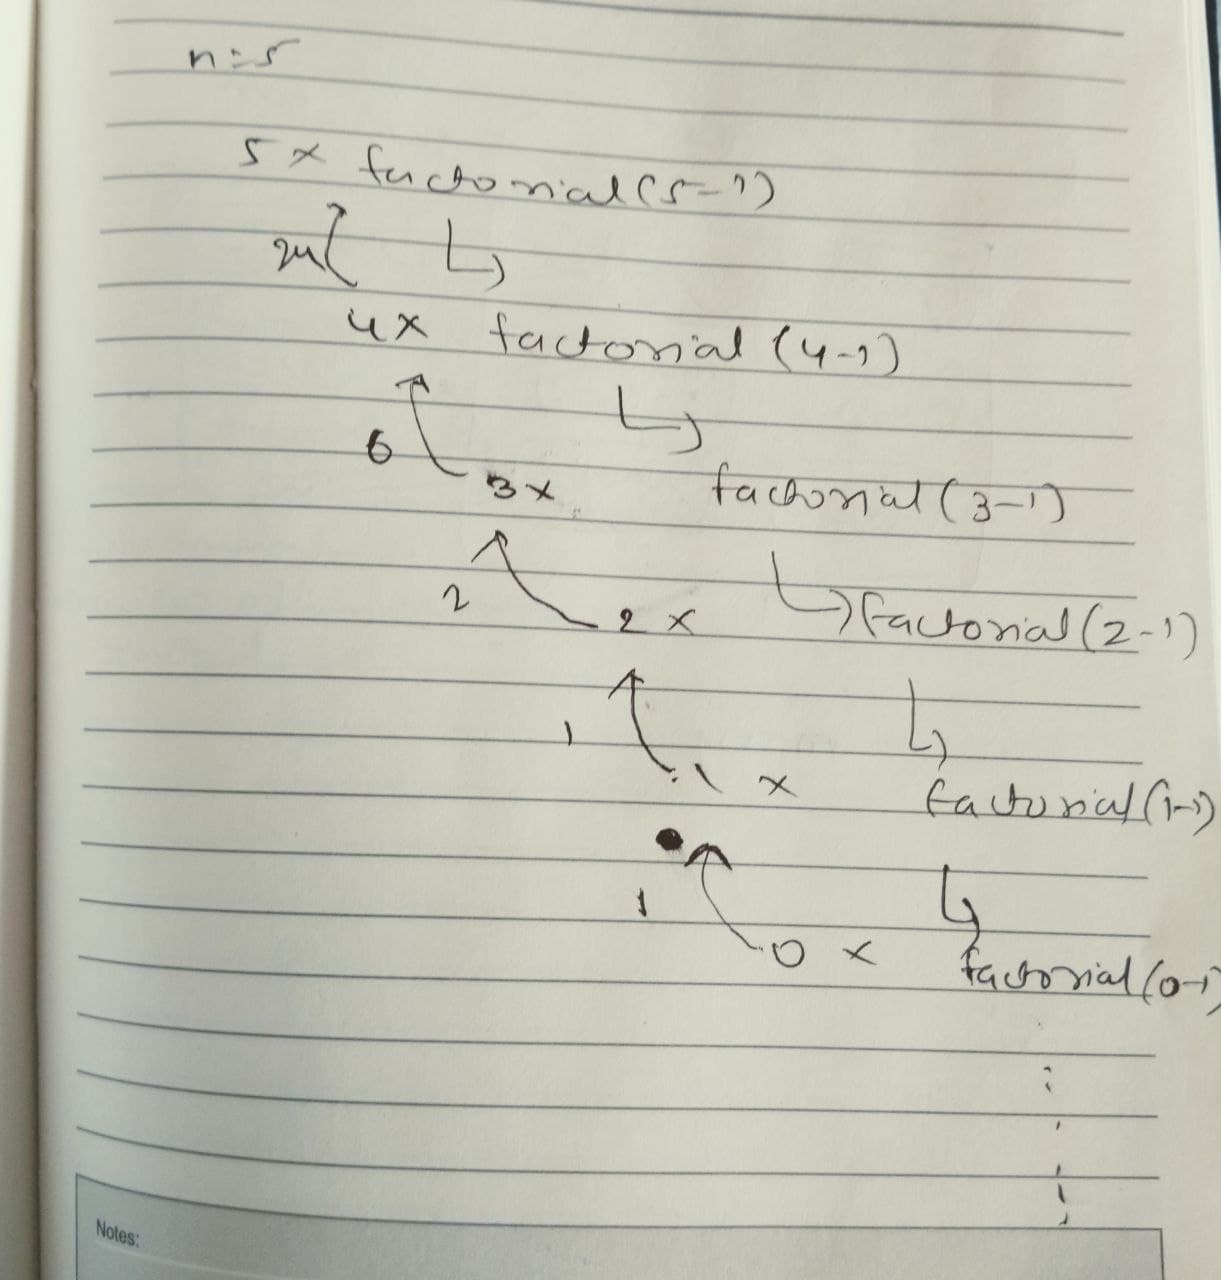 n=5
5 x factorial(5-1)
24
4x factorial (4-1)
6
3x factorial(3-1)
2
2 x factorial(2-1)
1
1 x factorial(1-1)
1
0 x factorial(0-1)
Notes: